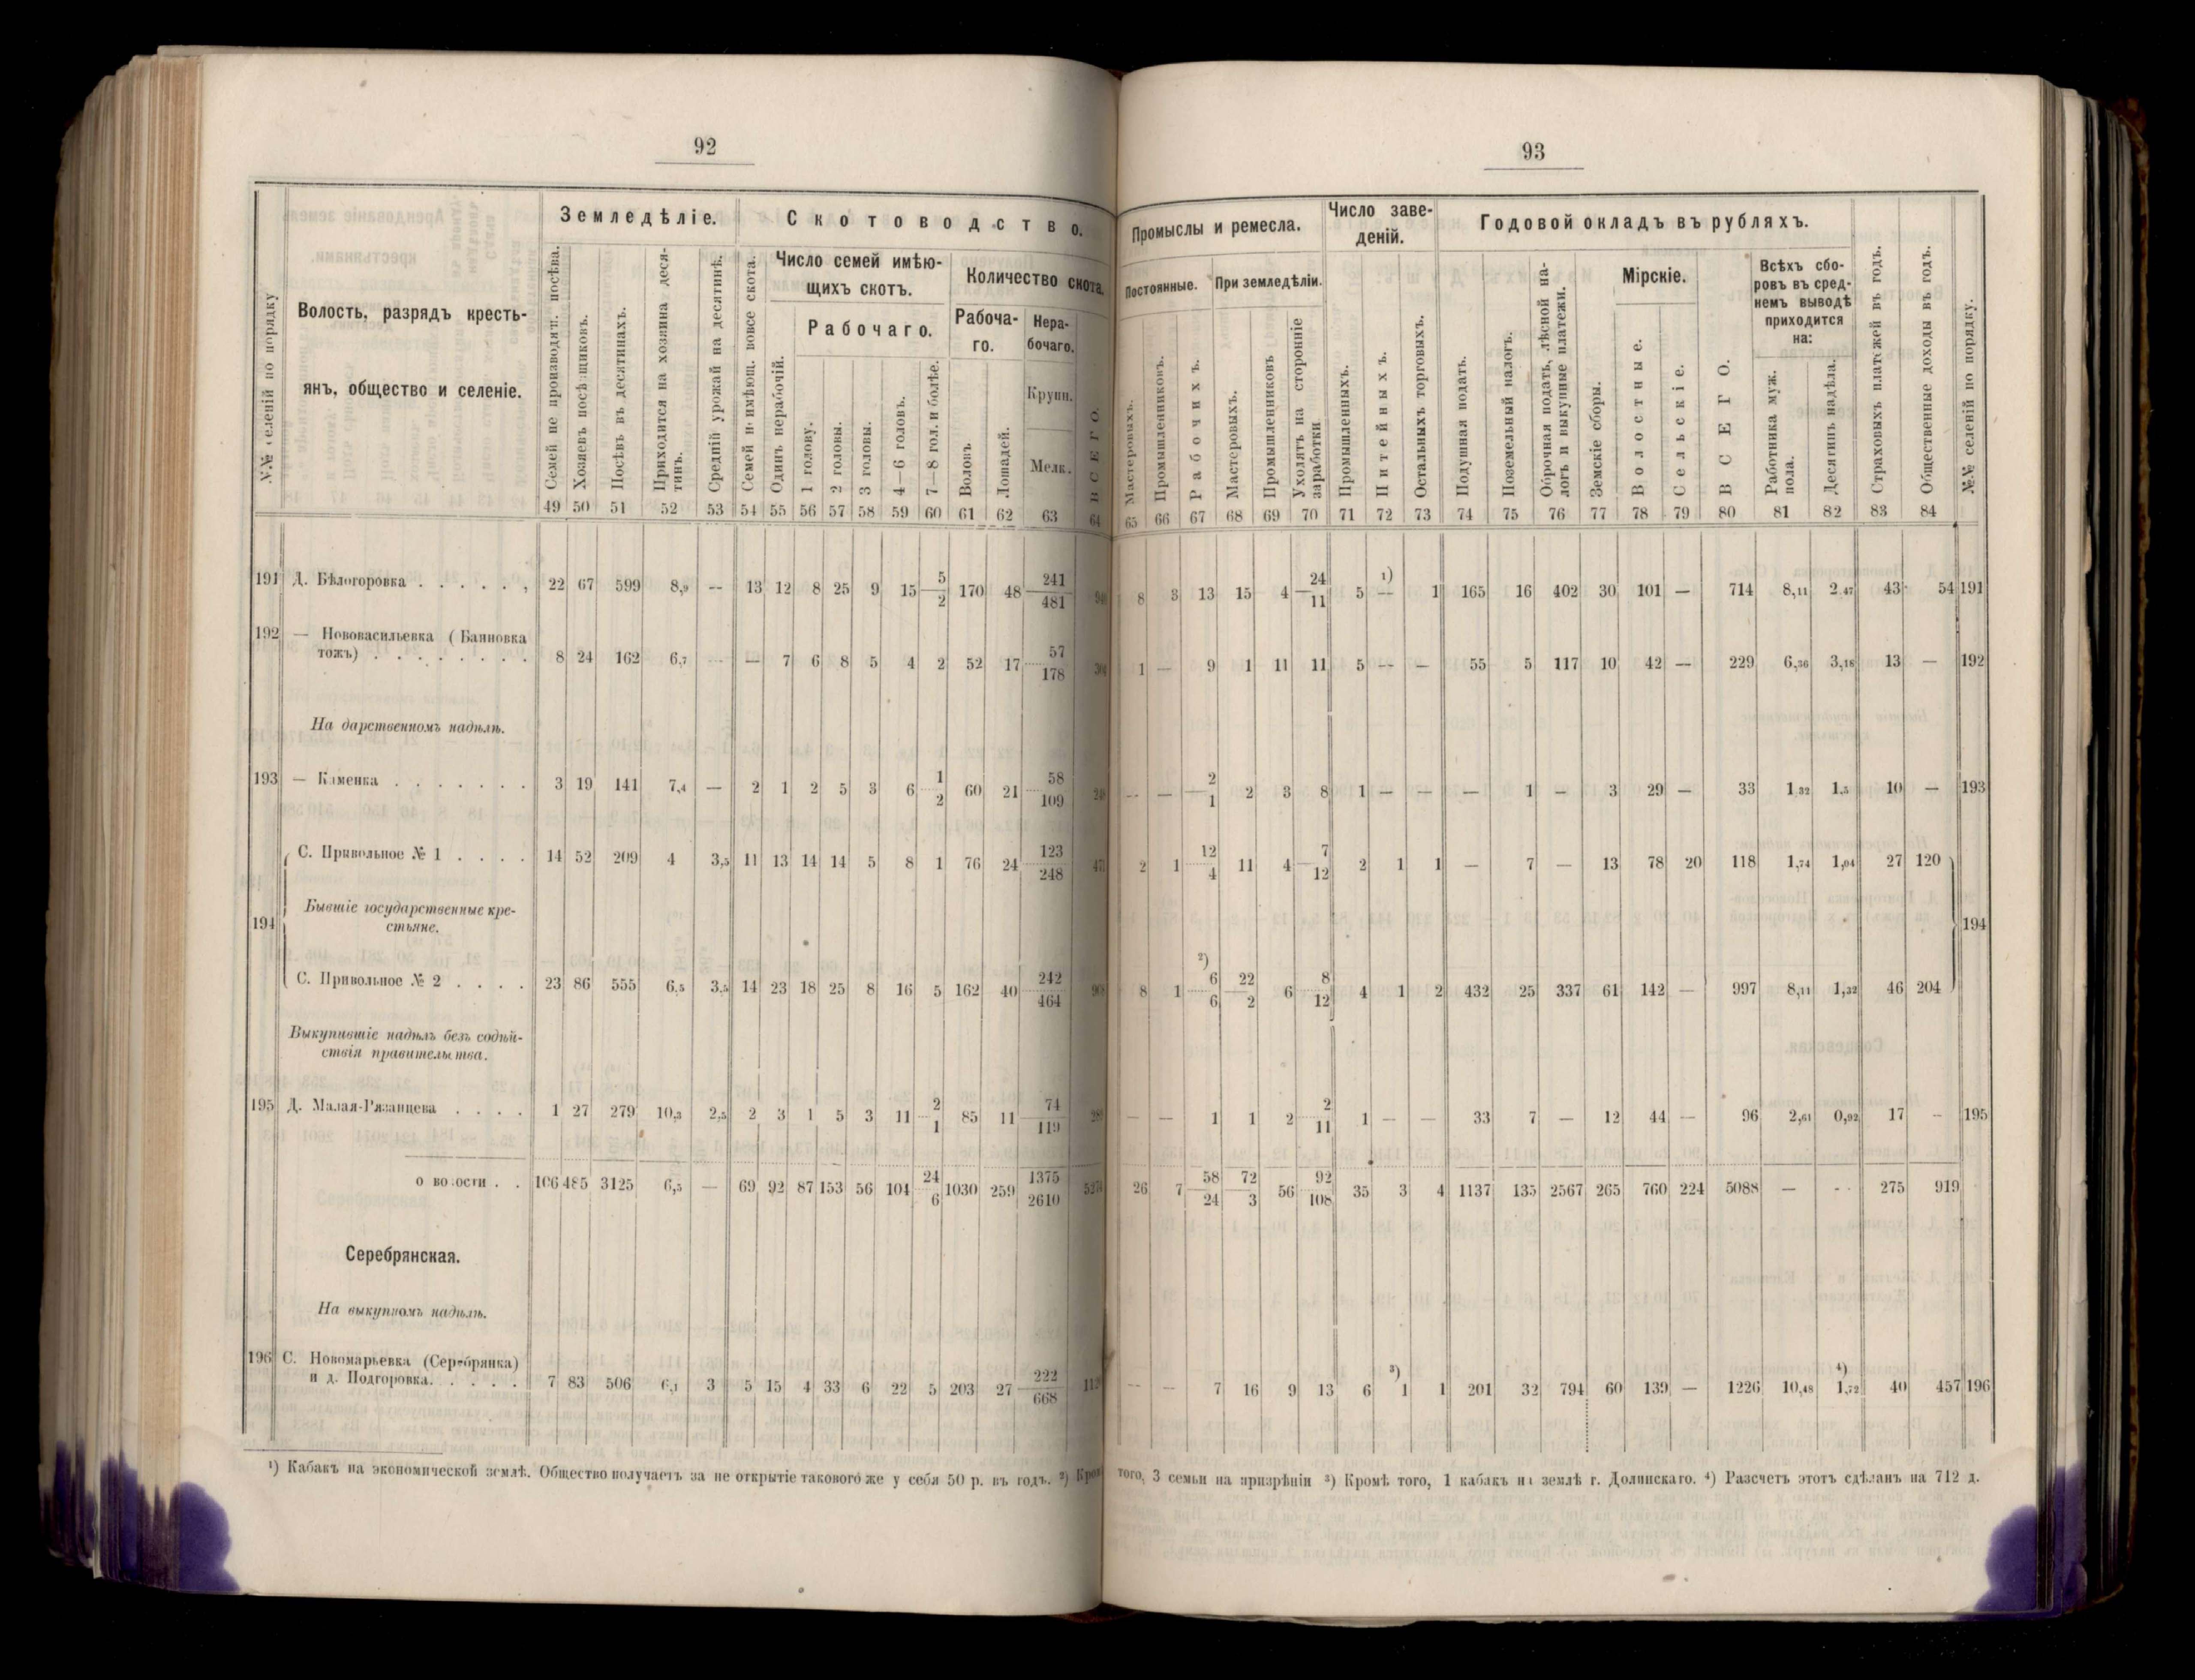 92
Земледѣліе.
Скотоводство.
Число семей имѣю-
щихъ скотъ.
Количество скота.
Рабочаго.
Рабоча-
го.
Нера-
бочаго.
Крупн.
Мелк.
№№ селеній по порядку
Волость, разрядъ кресть-
янъ, общество и селеніе.
Семей не производящ. посѣва.
Хозяевъ посѣвщиковъ.
Посѣвъ въ десятинахъ.
Приходится на хозяина деся-
тинъ.
Средній урожай на десятинѣ.
Семей не имѣющ. вовсе скота.
Одинъ нерабочій.
1 голову.
2 головы.
3 головы.
4—6 головъ.
7—8 гол. и болѣе.
Воловъ
Лошадей.
ВСЕГО.
49 50 51 52 53 54 55 56 57 58 59 60 61 62 63 64
191 Д. Бѣлогоровка 22 67 599 8,9 — 13 12 8 25 9 15 5/2 170 48 241/481
192 — Нововасильевка (Банновка
тожъ) 8 24 162 6,7 — — 7 6 8 5 4 2 52 17 57/178
На дарственномъ надѣлѣ.
193 — Каменка 3 19 141 7,4 — 2 1 2 5 3 6 1/2 60 21 58/109
С. Привольное № 1 14 52 209 4 3,5 11 13 14 14 5 8 1 76 24 123/248
Бывшіе государственные кре-
стьяне.
194
С. Привольное № 2 23 86 555 6,5 3,5 14 23 18 25 8 16 5 162 40 242/464
Выкупившіе надѣлъ безъ содѣй-
ствія правительства.
195 Д. Малая-Рязанцева 1 27 279 10,3 2,5 2 3 1 5 3 11 2/1 85 11 74/119
о волости 106 485 3125 6,5 — 69 92 87 153 56 104 24/6 1030 259 1375/2610
Серебрянская.
На выкупномъ надѣлѣ.
196 С. Новомарьевка (Серебрянка)
и д. Подгоровка 7 83 506 6,1 3 5 15 4 33 6 22 5 203 27 222/668
¹) Кабакъ на экономической землѣ. Общество получаетъ за не открытіе такового же у себя 50 р. въ годъ. ²) Кромѣ
93
Промыслы и ремесла.
Число заве-
деній.
Годовой окладъ въ рубляхъ.
Постоянные.
При земледѣліи.
Мірскіе.
Всѣхъ сбо-
ровъ въ сред-
немъ выводѣ
приходится
на:
Мастеровыхъ.
Промышленниковъ.
Рабочихъ.
Мастеровыхъ.
Промышленниковъ
Уходятъ на сторонніе
заработки
Промышленныхъ.
Питейныхъ.
Остальныхъ торговыхъ.
Подушная подать.
Поземельный налогъ.
Оброчная подать, лѣсной на-
логъ и выкупные платежи.
Земскіе сборы.
Волостные.
Сельскіе.
ВСЕГО.
Работника муж.
пола.
Десятинъ надѣла.
Страховыхъ платежей въ годъ.
Общественные доходы въ годъ.
№№ селеній по порядку.
65 66 67 68 69 70 71 72 73 74 75 76 77 78 79 80 81 82 83 84
8 3 13 15 4 24/11 5 ¹) — 1 165 16 402 30 101 — 714 8,11 2,47 43 54 191
1 — 9 1 11 11 5 — — 55 5 117 10 42 — 229 6,36 3,18 13 — 192
— — 2/1 2 3 8 1 — — — 1 — 3 29 — 33 1,32 1,5 10 — 193
2 1 12/4 11 4 7/12 2 1 1 — 7 — 13 78 20 118 1,74 1,04 27 120
194
8 1 ²) 6/6 22/2 6 8/12 4 1 2 432 25 337 61 142 — 997 8,11 1,32 46 204
— — 1 1 2 2/11 1 — — 33 7 — 12 44 — 96 2,61 0,92 17 — 195
26 7 58/24 72/3 56 92/108 35 3 4 1137 135 2567 265 760 224 5088 — — 275 919
— — 7 16 9 13 6 ³) 1 1 201 32 794 60 139 — 1226 10,48 ⁴) 1,72 40 457 196
того, 3 семьи на призрѣніи ³) Кромѣ того, 1 кабакъ на землѣ г. Долинскаго. ⁴) Разсчетъ этотъ сдѣланъ на 712 д.